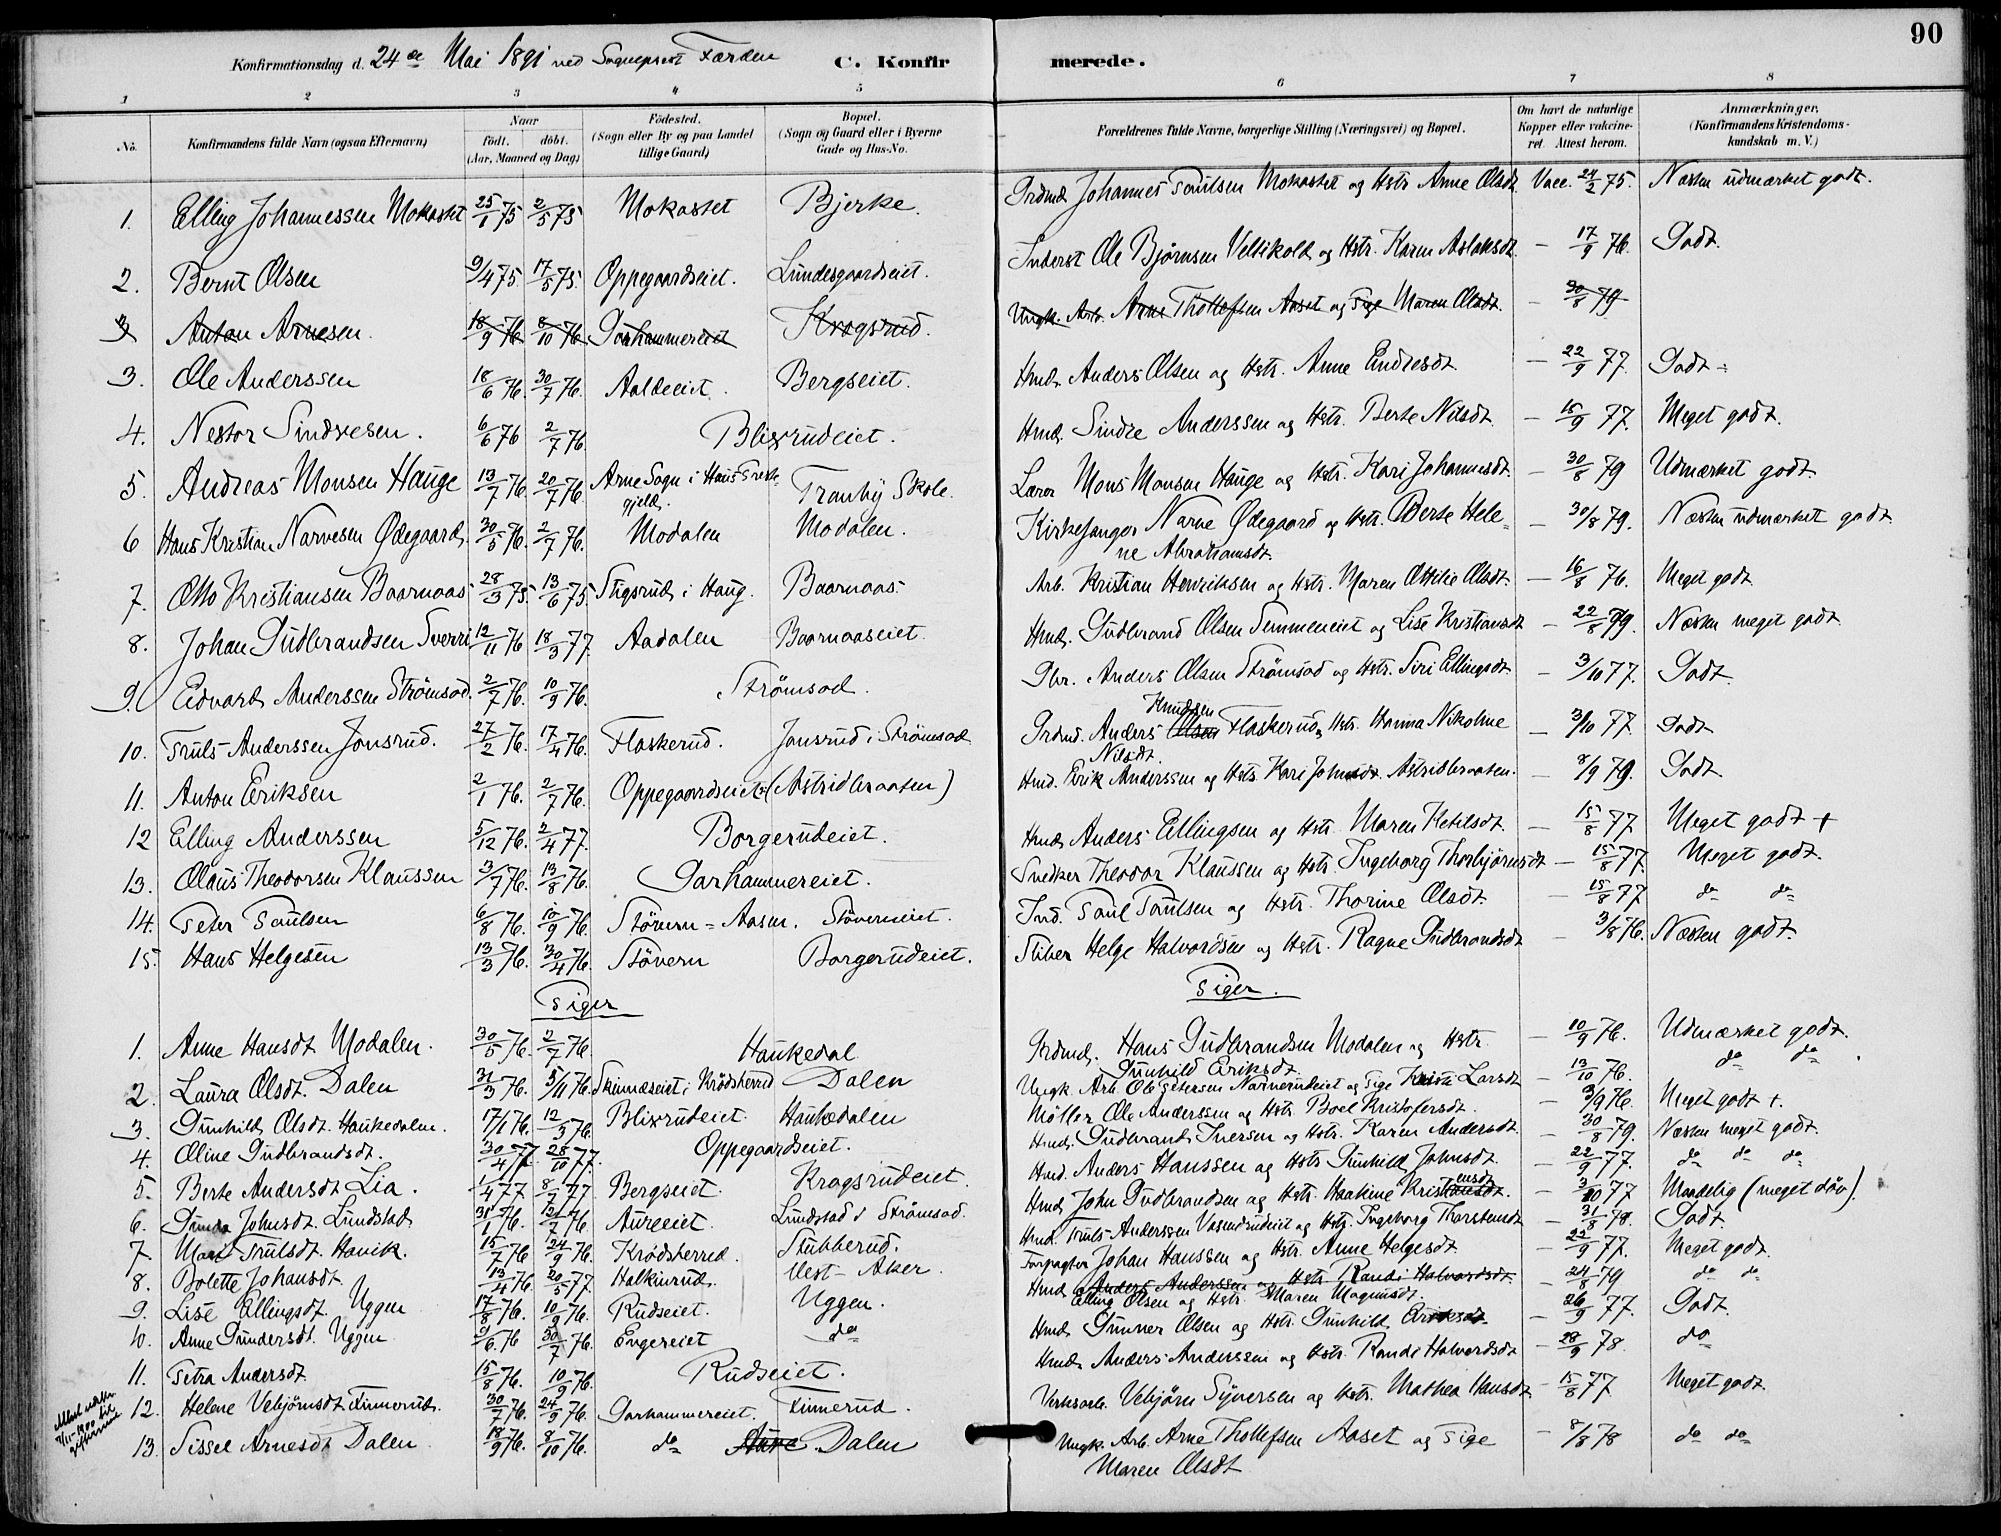 90
Konfirmationsdag d. 24de Mai 1891 ved Sogneprest Færden C. Konfirmerede.
1 2 3 4 5 6 7 8
No. Konfirmandens fulde Navn (ogsaa Efternavn) Naar født. døbt. (Aar, Maaned og Dag) Fødested. (Sogn eller By og paa Landet tillige Gaard) Bopæl. (Sogn og Gaard eller i Byerne Gade og Hus-No. Forældrenes fulde Navne, borgerlige Stilling (Næringsvei) og Bopæl. Om havt de naturlige Kopper eller vakcineret. Attest herom. Anmærkninger. (Konfirmandens Kristendomskundskab m. V.)
1. Elling Johannessen Mokastet 25/1 75 2/5 75 Mokastet Bjerke. Grdmd. Johannes Paulsen Mokastet og Hstr. Anne Olsdt. Vacc. 24/2 75. Næsten udmærket godt.
2. Bernt Olsen 9/4 75. 17/5 75. Oppegaardseiet. Lundesgaardseiet. Inderst Ole Bjørnsen Veltikold og Hstr. Karen Aslaksdt. – 17/9 76. Godt.
3 Anton Arnesen. 18/9 76 8/10 76 Garhammereiet Kragsrud. Ungk. Arb. Arne Thollefsen Aaset og Pige Maren Olsdt. – 30/8 79
3. Ole Anderssen 18/6 76. 30/7 76. Aaldeeiet. Bergseiet. Hmd. Anders Olsen og Hstr. Anne Endresdt. – 22/9 77. Godt
4. Nestor Sindresen. 6/6 76 2/7 76. Blixrudeiet. Hmd. Sindre Anderssen og Hstr. Berte Nilsdt. – 15/9 77. Meget godt.
5. Andreas Monsen Hauge 13/7 76. 20/7 76 Arne Sogn i Haus Prestegjeld. Tranby Skole. Lærer Mons Monsen Hauge og Hstr. Kari Johannesdt. – 30/8 79 Udmærket godt.
6 Hans Kristian Narvesen Ødegaard. 30/5 76. 2/7 76. Modalen Modalen. Kirkesanger Narve Ødegaard og Hstr. Berte Hele-
ne Abrahamsdt. – 30/8 79. Næsten udmærket godt
7. Otto Kristiansen Baarnaas 28/3 75. 13/6 75. Stigsrud i Haug. Baarnaas. Arb. Kristian Henriksen og Hstr. Maren Ottilie Olsdt. – 16/8 76. Meget godt.
8. Johan Gudbrandsen Sverri 12/11 76 18/3 77. Aadalen Baarnaaseiet. Hmd. Gudbrand Olsen Semmeneiet og Lise Kristiansdt. – 22/8 79. Næsten meget godt
9. Edvard Anderssen Strømsod. 2/7 76. 10/9 76. Strømsod. Gbr. Anders Olsen Strømsod og Hstr. Siri Ellingsdt. – 3/10 77. Godt.
10. Truls Anderssen Jonsrud. 27/2 76. 17/4 76. Flaskerud. Jonsrud i Strømsod Grdmd. Anders Olsen Knudsen Flaskerud, Hstr. Hanna Nikoline
Nilsdt. – 3/10 77. Godt
11. Anton Eriksen 2/1 76. 2/7 76. Oppegaardseiet (Astridbraaten) Hmd. Erik Anderssen og Hstr. Kari Johnsdt. Astridbraaten. – 8/9 79. Godt.
12 Elling Anderssen 5/12 76. 2/4 77. Borgerudeiet. Hmd. Anders Ellingsen og Hstr. Maren Ketilsdt. – 15/8 77 Meget godt +
13. Olaus Theodorsen Klaussen 3/7 76. 13/8 76. Garhammereiet. Snedker Theodor Klaussen og Hstr. Ingeborg Thorbjørnsdt – 15/8 77. Meget godt.
14. Peter Paulsen 6/8 76. 10/9 76. Støvern-Aasen. Støverneiet. Ind. Paul Paulsen og Hstr. Thorine Olsdt – 15/8 77 do do
15. Hans Helgesen 13/3 76. 30/4 76. Støvern Borgerudeiet. Sliber Helge Halvordsen og Hstr. Ragne Gudbrandsdt – 3/8 76. Næsten godt.
Piger Piger.
1. Anne Hansdt Modalen. 30/5 76. 2/7 76. Haukedal Grdmd. Hans Gudbrandsen Modalen og Hstr.
Gunhild Eriksdt. – 10/9 76. Udmærket godt.
2. Laura Olsdt. Dalen 31/3 76. 5/11 76. Skinnæseiet i Krødsherred Dalen Ungk. Arb. Ole Petersen Narverudeiet og Pige Larsdt – 13/10 76. do do
3. Gunhild Olsdt. Haukedalen. 17/1 76. 12/3 76. Blixrudeiet Haukedalen Møller Ole Anderssen og Hstr. Boel Kristofersdt. – 3/9 76. Meget godt +.
4. Oline Gudbrandsdt. 30/4 77 28/10 77. Oppegaardseiet. Hmd. Gudbrand Iversen og Hstr. Karen Andersdt. – 30/8 79. Næsten meget godt.
5. Berte Andersdt Lia. 1/4 77 8/7 77 Bergseiet. Kragsrudeiet. Hmd. Anders Hanssen og Hstr. Gunhild Johnsdt. – 22/9 77. do do do
6. Johnsdt. Lundstad 31/1 76. 12/7 76 Aureeiet. Lundstad i Strømsod. Hmd John Gudbrandsen og Hstr. Haakine Kristiansdt. ensdt – 3/10 77 Maadelig (meget døv).
7. Trulsdt. Hanik. 15/7 76. 24/9 76. Krødsherred. Stubberud. Hmd. Truls Anderssen og Hstr. Ingeborg Thorstensdt – 31/8 78. Godt.
8. Bolette Johansdt. 13/4 76. 20/5 77. Halkinrud. Vest-Aker. Forpagter Johan Hanssen og Hstr. Anne Helgesdt. – 22/9 77. Meget godt.
9. Lise Ellingsdt. Uggen 17/8 76. 10/9 76. Rudseiet. Uggen. Hmd. Anders Anderssen og Hstr. Randi Halvordsdt.
Elling Olsen og Hstr. Maren Magnusdt. – 24/8 79 do do
10. Anne Gundersdt. Uggen. 9/6 76 30/7 76. Engereiet do Hmd. Gunner Olsen og Hstr. Gunhild Eriksdt. – 26/9 77. Godt.
11. Petra Andersdt. 15/8 76. 10/9 76. Rudseiet. Hmd. Anders Anderssen og Hstr. Randi Halvordsdt – 28/9 78. do
12. Helene Vebjørnsdt. Finnerud. 30/7 76. 24/9 76. Garhammereiet. Finnerud. Verksarb. Vebjørn Syversen og Hstr. Mathea Hansdt – 15/8 77 Meget godt.
13. Sissel Arnesdt Dalen 18/9 76. 8/10 76. do Dalen Ungk. Arb. Arne Thollefsen Aaset og Pige
Maren Olsdt. – 8/8 78 do do